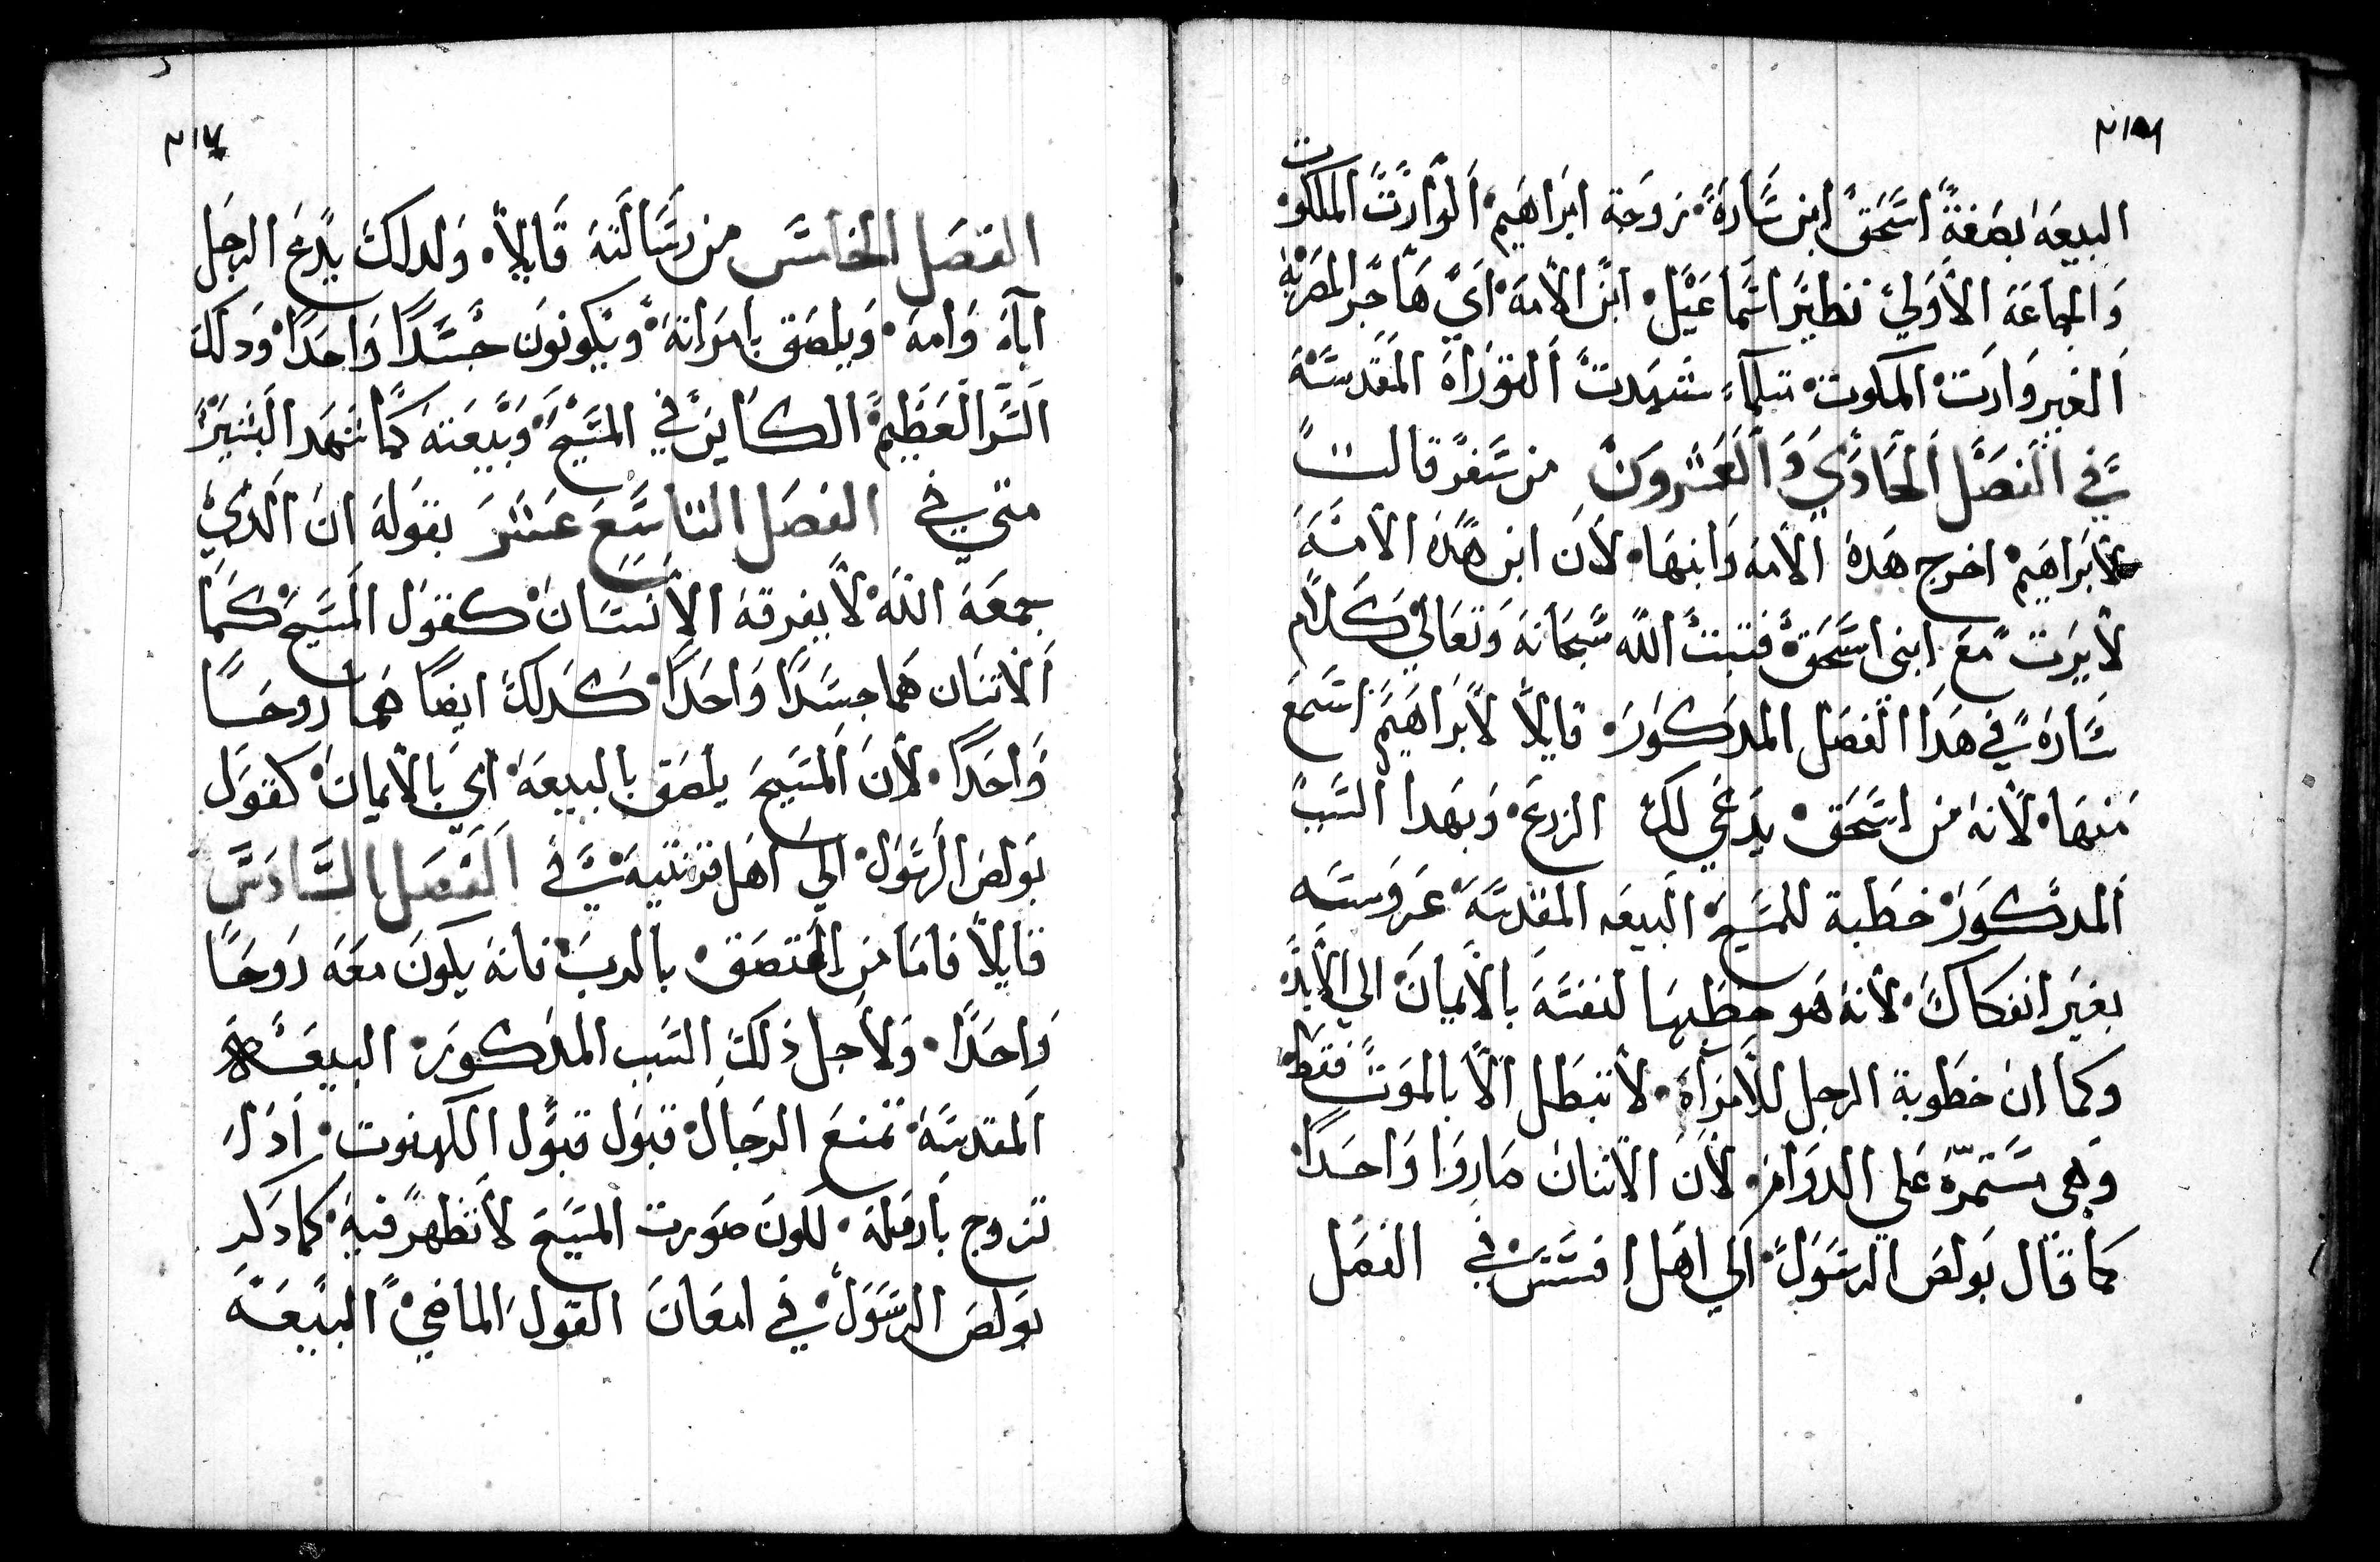 البيعه بصفة اسحق ابن ساره زوجة ابراهيم الوارثت الملكوت
والجماعه الاولي نظير اسماعيل ابن الامه اي هاجر المصريه
الغير وارت الملكوت تبكماء شهدت التوراه المقدسه
في الفصل الحادي والعشرون من سفر قالت
لابراهيم اخرج هده الامه وابنها لان ابن هده الامه
لا يرت مع ابني اسحق فتبت الله سبحانه وتعالي كلام
ساره في هدا الفصل المدكور قايلا لابراهيم اسمع
منها لانه من اسحق يدعي لك الزرع وبهدا السبب
المدكور خطبة للمسيح البيعه المقدسه عروسته
بغير انفكاك لانه هو خطبها لنفسه بالايمان الي الابد
وكما ان خطوبة الرجل للامراه لا تبطل الا بالموت فقط
وهي مستمره علي الدوام لان الاتنان صاروا واحدا
كما قال بولص الرسول الي اهل افسس في الفصل
الفصل الخامس من رسالته قايلا ولدلك يدع الرجل
اباه وامه ويلصق بامراته ويكونون جسدا واحدا ودلك
السر العظيم الكاين في المسيح وبيعته كما شهد البشير
متي في الفصل التاسع عشر بقوله ان الدي
جمعه الله لا يفرقه الانسان كقول المسيح كما
الاتنان هما جسدا واحدا كدلك ايضا هما روحا
واحدا لان المسيح يلصق بالبيعه اي بالايمان كقول
بولص الرسول الي اهل قرنتيه في الفصل السادس
قايلا فاما من التصق بالرب فانه يكون معه روحا
واحدا ولاجل ذلك السبب المدكور البيعه
المقدسه تمنع الرجال قبول قبول الكهنوت ادا
تزوج بارمله لكون صورت المسيح لا تظهر فيه كما دكر
بولص الرسول في امعان القول الماضي البيعه